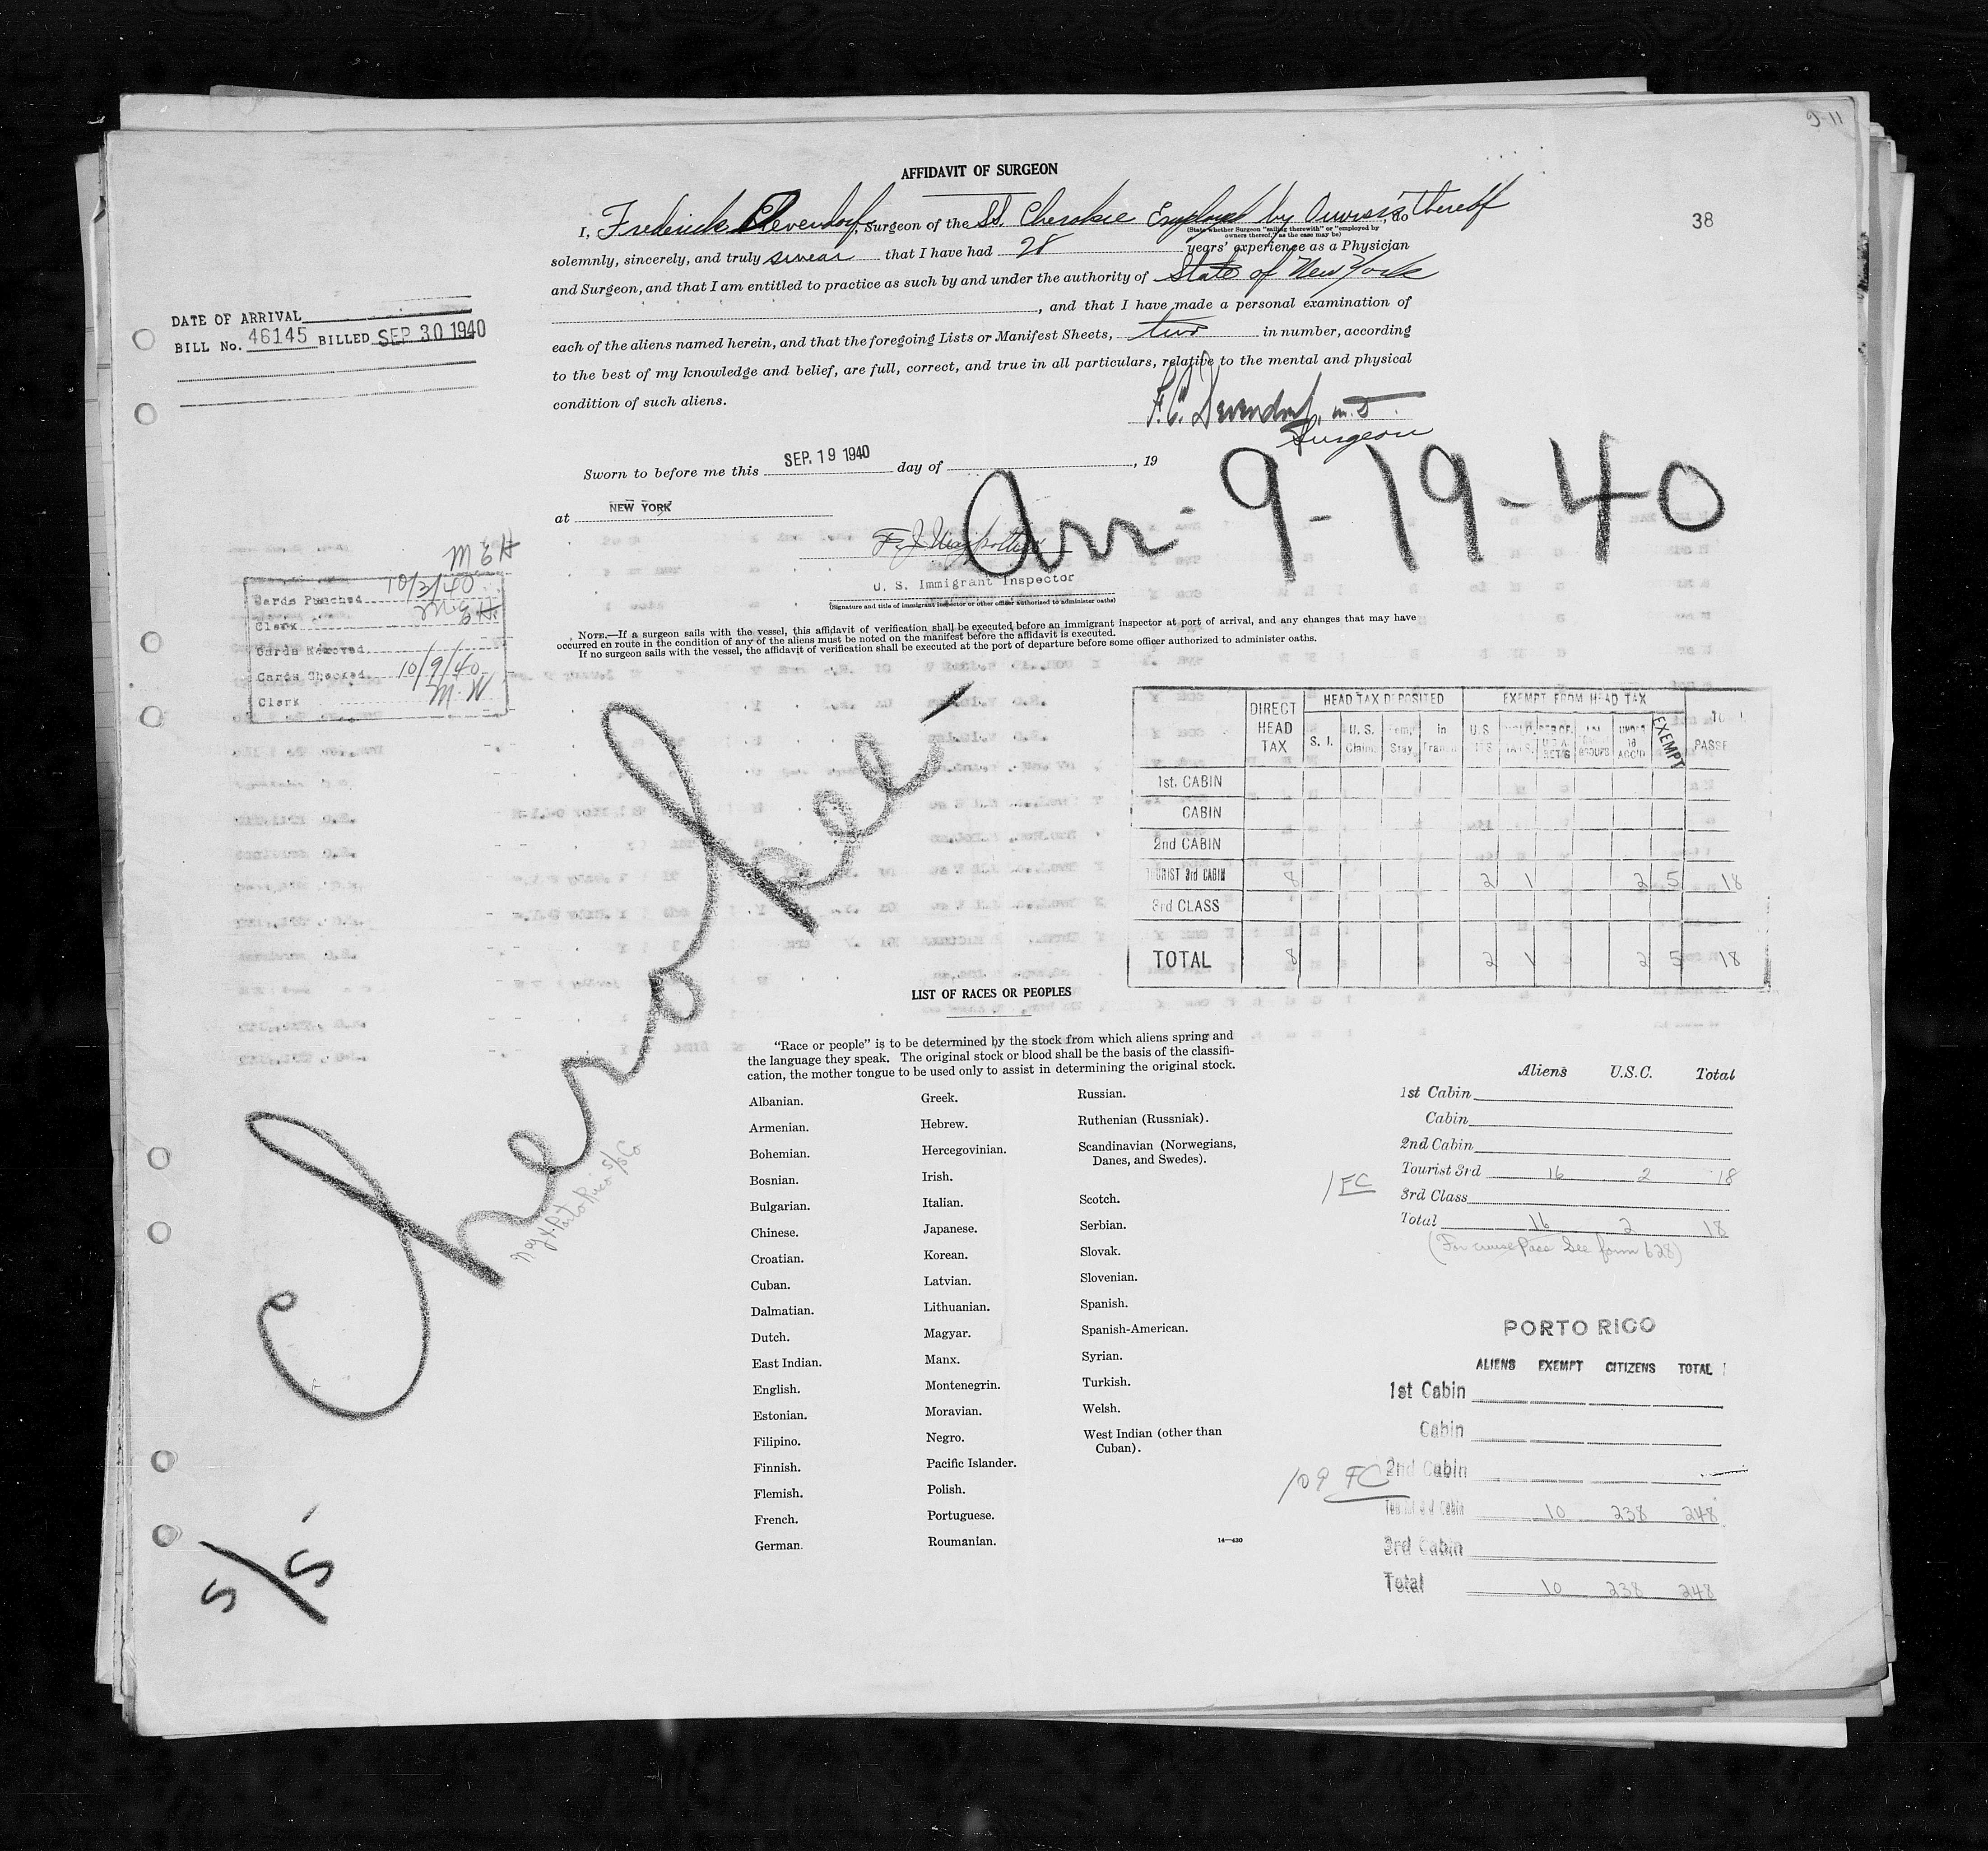 9-11
38
AFFIDAVIT OF SURGEON
I, Frederick Devendorf, Surgeon of the SS. Cherokee Employed by Owners thereof, do
(State whether Surgeon "sailing therewith" or "employed by
owners thereof," as the case may be)
solemnly, sincerely, and truly swear that I have had 28 years' experience as a Physician
and Surgeon, and that I am entitled to practice as such by and under the authority of State of New York
, and that I have made a personal examination of
each of the aliens named herein, and that the foregoing Lists or Manifest Sheets, two in number, according
to the best of my knowledge and belief, are full, correct, and true in all particulars, relative to the mental and physical
condition of such aliens.
F. C. Devendorf, M.D.
Surgeon
DATE OF ARRIVAL
BILL No. 46145 BILLED SEP 30 1940
Sworn to before me this SEP. 19 1940 day of , 19
at NEW YORK
Arr- 9-19-40
F. J.
U. S. Immigrant Inspector
(Signature and title of immigrant inspector or other officer authorized to administer oaths)
NOTE.—If a surgeon sails with the vessel, this affidavit of verification shall be executed before an immigrant inspector at port of arrival, and any changes that may have
occurred en route in the condition of any of the aliens must be noted on the manifest before the affidavit is executed.
If no surgeon sails with the vessel, the affidavit of verification shall be executed at the port of departure before some officer authorized to administer oaths.
M E H
Cards Punched 10/3/40
Clerk M. E. H.
Cards Removed
Cards Checked 10/9/40
Clerk M. W
S/S Cherokee
N.Y. & Porto Rico S/S Co
DIRECT HEAD TAX HEAD TAX DEPOSITED EXEMPT FROM HEAD TAX
S. I. U. S. Claim Temp Stay in Trans U.S. UNDER 16 ACC'D EXEMPT PASSE
1st. CABIN
CABIN
2nd CABIN
TOURIST 3rd CABIN 8 2 1 2 5 18
3rd CLASS
TOTAL 8 2 1 2 5 18
LIST OF RACES OR PEOPLES
"Race or people" is to be determined by the stock from which aliens spring and
the language they speak. The original stock or blood shall be the basis of the classifi-
cation, the mother tongue to be used only to assist in determining the original stock.
Albanian.
Armenian.
Bohemian.
Bosnian.
Bulgarian.
Chinese.
Croatian.
Cuban.
Dalmatian.
Dutch.
East Indian.
English.
Estonian.
Filipino.
Finnish.
Flemish.
French.
German.
Greek.
Hebrew.
Hercegovinian.
Irish.
Italian.
Japanese.
Korean.
Latvian.
Lithuanian.
Magyar.
Manx.
Montenegrin.
Moravian.
Negro.
Pacific Islander.
Polish.
Portuguese.
Roumanian.
Russian.
Ruthenian (Russniak).
Scandinavian (Norwegians,
Danes, and Swedes).
Scotch.
Serbian.
Slovak.
Slovenian.
Spanish.
Spanish-American.
Syrian.
Turkish.
Welsh.
West Indian (other than
Cuban).
14—430
Aliens U.S.C. Total
1st Cabin
Cabin
2nd Cabin
1 FC
Tourist 3rd 16 2 18
3rd Class
Total 16 2 18
(For cruise Pass See form 628)
PORTO RICO
ALIENS EXEMPT CITIZENS TOTAL
1st Cabin
Cabin
109 FC
2nd Cabin
Tourist 3rd Cabin 10 238 248
3rd Cabin
Total 10 238 248